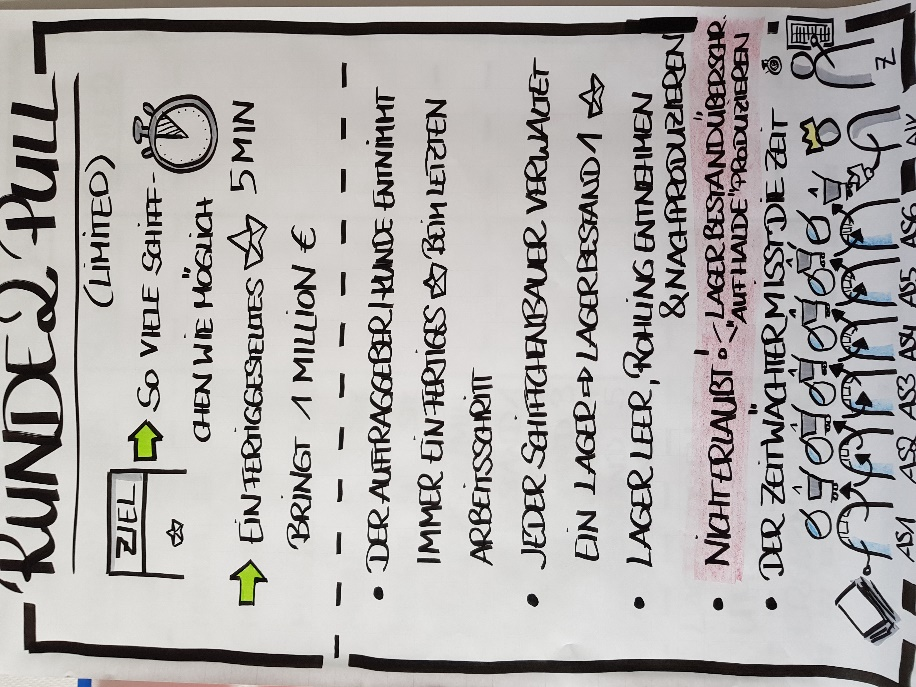 RUNDE 2 PULL
(LIMITED)
ZIEL
SO VIELE SCHIFF-
CHEN WIE MÖGLICH
EIN FERTIGGESTELLTES 5 MIN
BRINGT 1 MILLION €
• DER AUFTRAGGEBER/KUNDE ENTNIMMT
IMMER EIN FERTIGES BEIM LETZTEN
ARBEITSSCHRITT
• JEDER SCHIFFCHENBAUER VERWALTET
EIN LAGER → LAGERBESTAND 1
• LAGER LEER, ROHLING ENTNEHMEN
& NACHPRODUZIEREN
• NICHT ERLAUBT! : LAGERBESTAND ÜBERSCHR.
"AUF HALDE" PRODUZIEREN
• DER ZEITWÄCHTER MISST DIE ZEIT
1 1 1 1 1 1
AS1 AS2 AS3 AS4 AS5 AS6 A/K Z